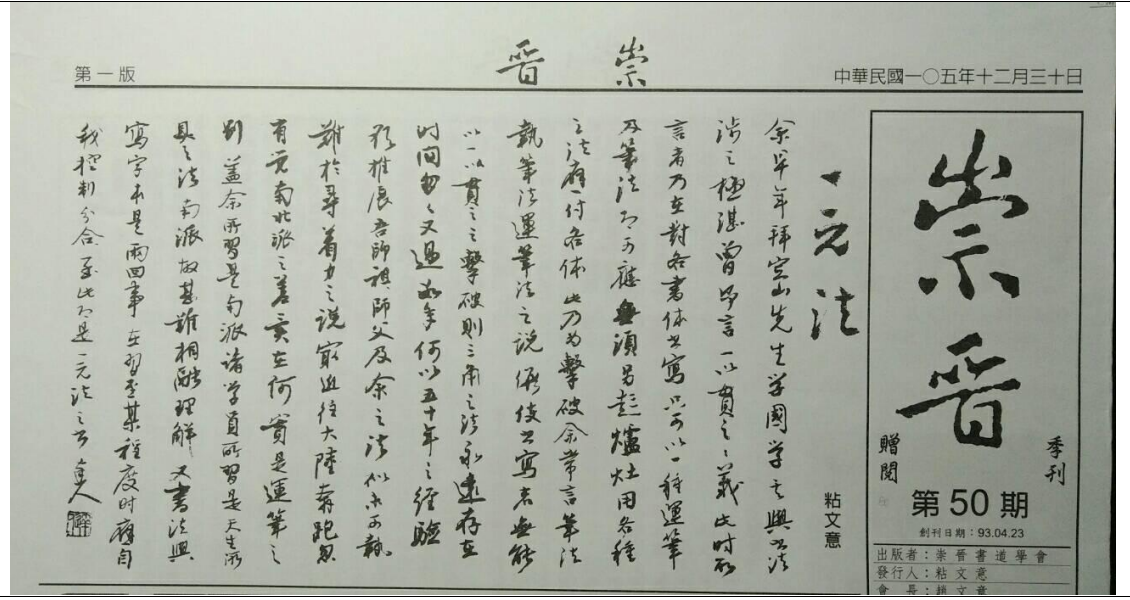 中華民國一〇五年十二月三十日
崇晉
第一版
崇晉
季刊
贈閱
第50期
創刊日期：93.04.23
出版者：崇晉書道學會
發行人：粘文意
會長：趙文章
一元法
粘文意
余早年拜寒山先生学國学之與书法
涉之極湛曾言一以貫之之義此时所
言者乃在對各書体书寫只可以一種運筆
及筆法即可應無須另起爐灶用各種
之法應付各体此乃为擊破余常言筆法
執筆法運筆法之說使书寫者無能
以一以貫之之擊破則三角之法永遠存在
时间匆匆又過數年何以五十年之經驗
欲推展吾師祖師父及余之法似未可執
難於尋着力之說最近往大陸奔跑忽
有覓南北派之差異在何實是運筆之
别蓋余所習是南派诸学員所習是天生所
具之法南派故甚難相融理解又書法與
寫字本是兩回事在習至某程度时應自
我控制分合至此即是一元法之